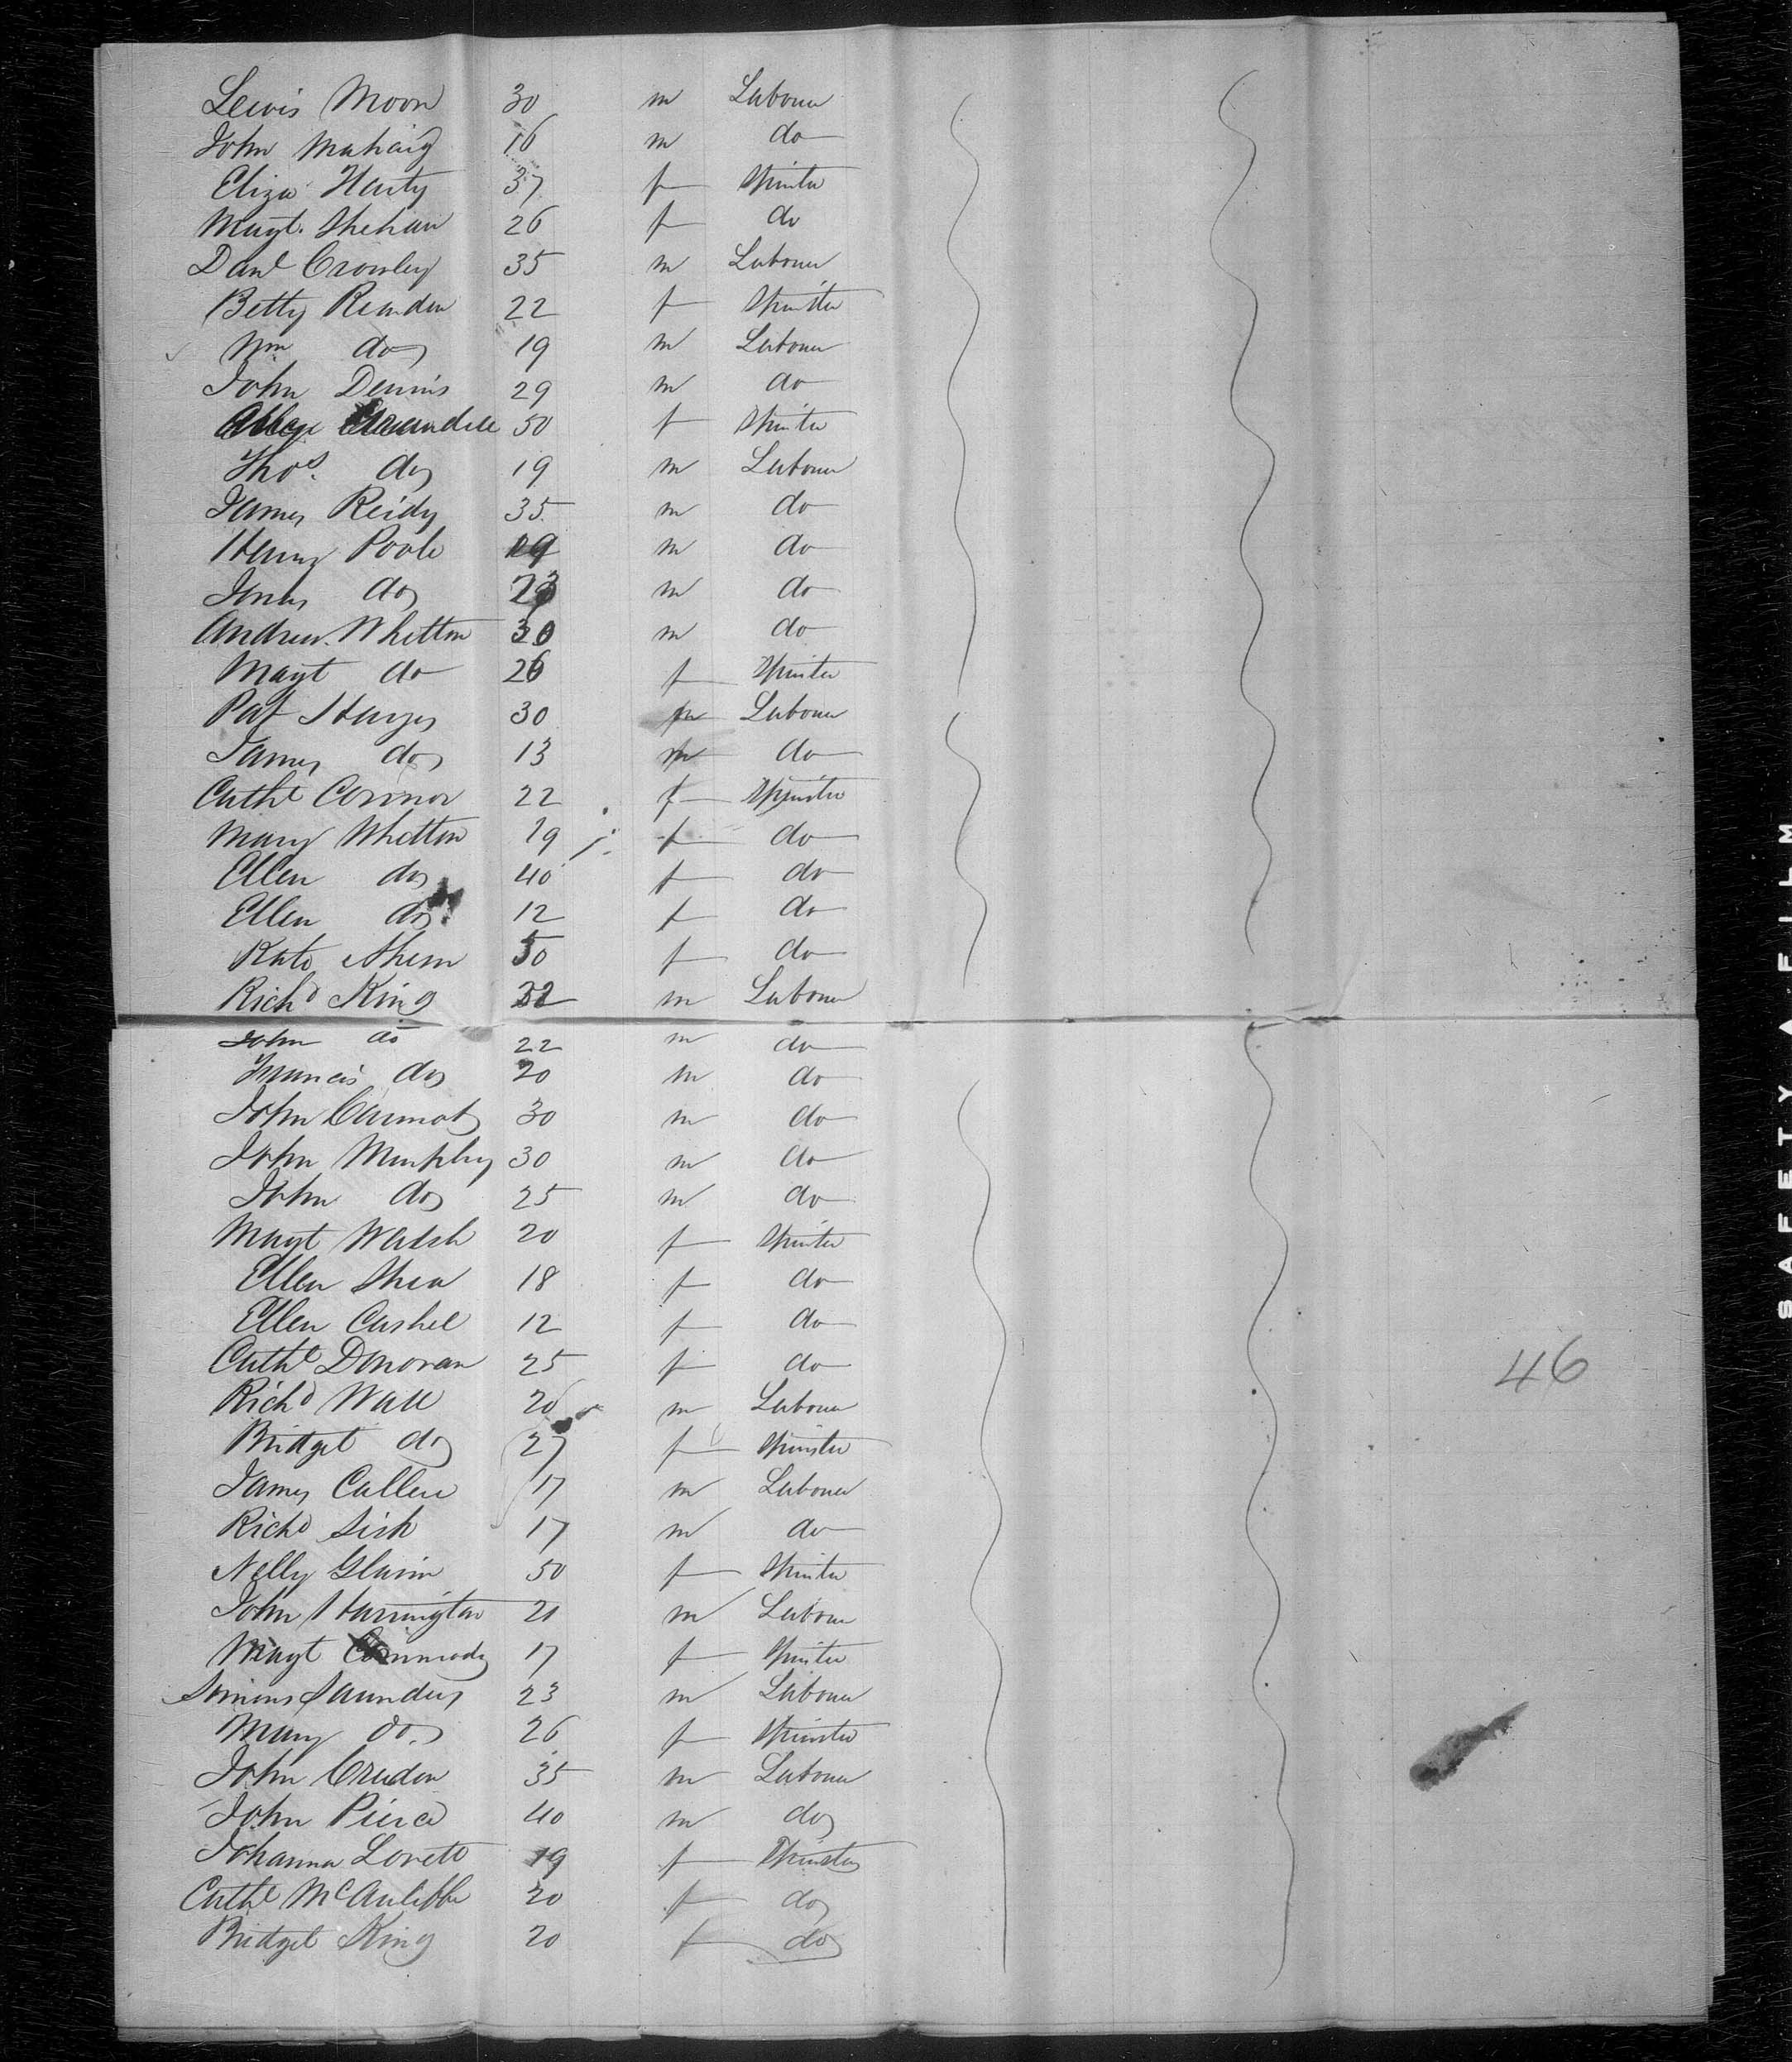 Lewis Moon 30 m Labourer
John 16 m do
Eliza Harty 37 f Spinster
Magt. Shehan 26 f do
Danl Crowley 35 m Labourer
Betty Reardon 22 f Spinster
Wm do 19 m Labourer
John Dennis 29 m do
50 f Spinster
Thos. do 19 m Labourer
James Reidy 35 m do
Henry Poole 19 m do
do 23 m do
Andrew Whetton 30 m do
Magt do 26 f Spinster
Pat Hayes 30 m Labourer
James do 13 m do
Cathe Connor 22 f Spinster
Mary Whetton 19 f do
Ellen do 40 f do
Ellen do 12 f do
Kate Ahern 50 f do
Richd King 32 m Labourer
John do 22 m do
Francis do 20 m do
John 30 m do
John Murphy 30 m do
John do 25 m do
Magt Walsh 20 f Spinster
Ellen Shea 18 f do
Ellen Cashel 12 f do
Cathe Donovan 25 f do
Richd Wall 26 m Labourer
Bridget do 27 f Spinster
James Cullen 17 m Labourer
Richd Sisk 17 m do
Nelly Glavin 50 f Spinster
John Harrington 21 m Labourer
Magt 17 f Spinster
Saunders 23 m Labourer
Mary do. 26 f Spinster
John Creedon 35 m Labourer
John Pierce 40 m do
Johanna Lovett 19 f Spinster
Cathe McAuliffe 20 f do
Bridget King 20 f do
46
SAFETY FILM